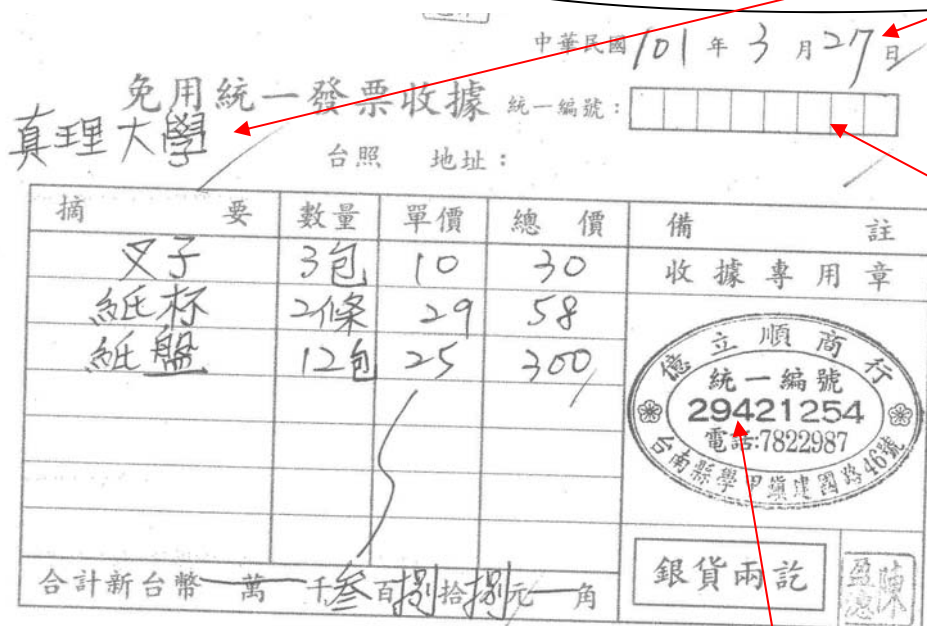 中華民國101年3月27日
免用統一發票收據 統一編號：
真理大學
台照 地址：
摘要 數量 單價 總價 備註
叉子 3包 10 30
收據專用章
紙杯 2條 29 58
紙盤 12包 25 300
億立順商行
統一編號
29421254
電話:7822987
台南縣學甲鎮建國路46號
合計新台幣 萬 千叁百捌拾捌元 角
銀貨兩訖